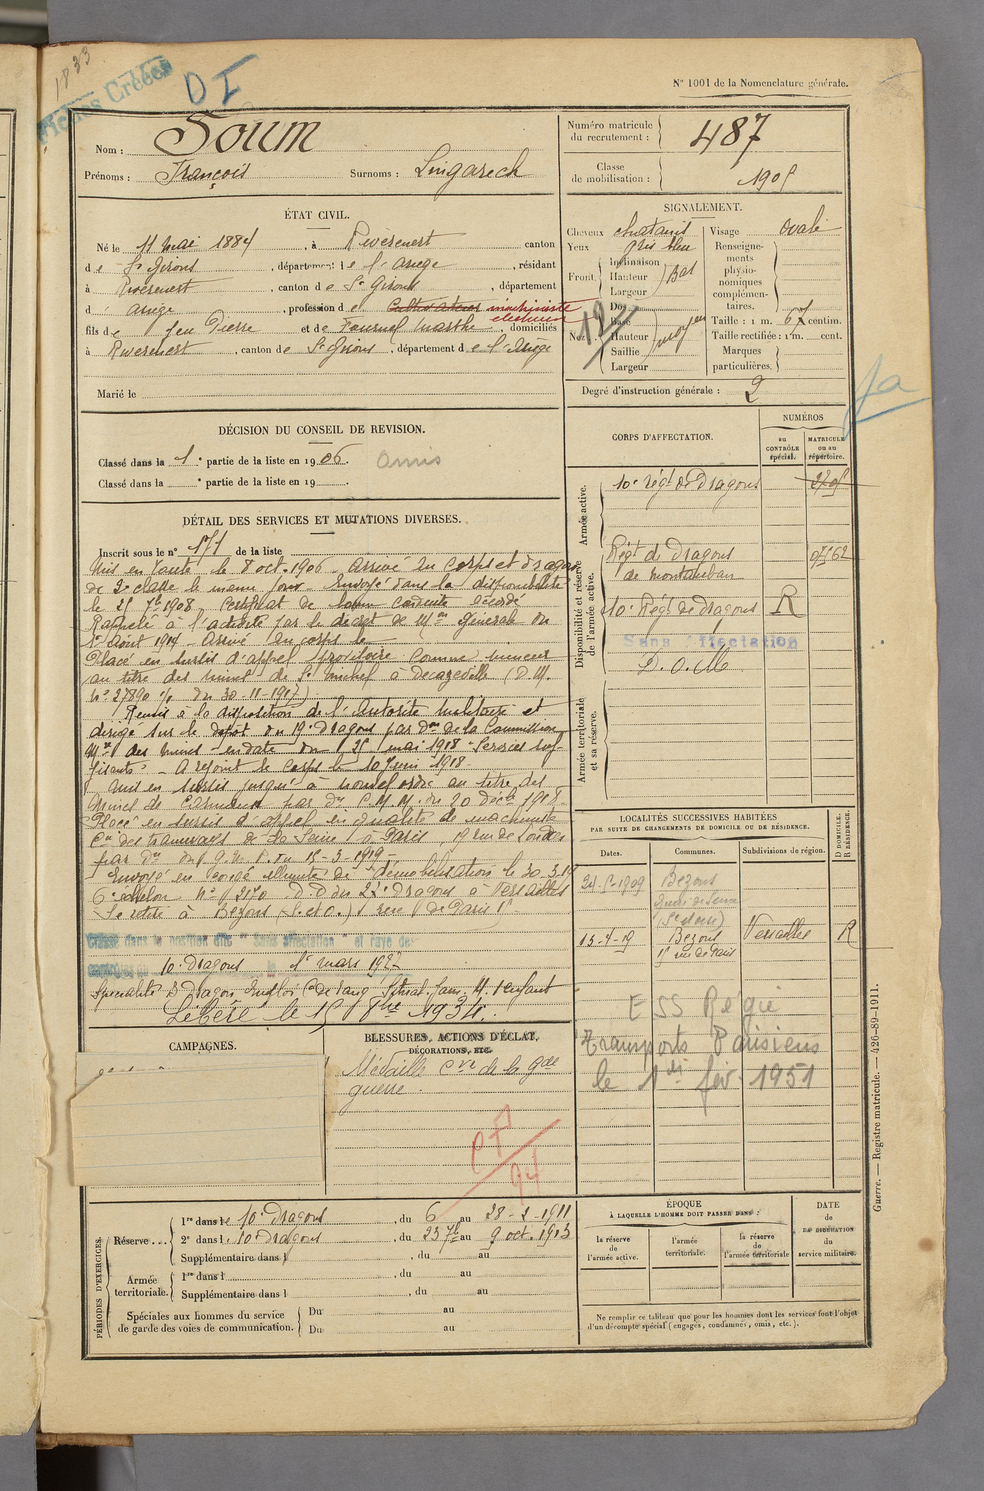 1833
Fiches Créées
DI
N° 1001 de la Nomenclature générale.
Nom : Soum
Prénoms : François Surnoms : Lingarech
Numéro matricule du recrutement : 487
Classe de mobilisation : 1905
ÉTAT CIVIL.
Né le 11 mai 1884, à Riverenert canton
de St Girons, département de l'Ariège, résidant
à Riverenert, canton de St Girons, département
d' Ariège, profession de Cultivateur machiniste électricien
fils de feu Pierre et de Fournel Marthe, domiciliés
à Riverenert, canton de St Girons, département de l'Ariège
Marié le
SIGNALEMENT.
Cheveux chatains
Yeux gris bleu
Front Inclinaison
Hauteur Bas
Largeur
Nez Dos
Base
Hauteur moyen
Saillie
Largeur
Visage Ovale
Renseignements physionomiques complémentaires.
Taille : 1 m. 67 centim.
Taille rectifiée : 1 m. cent.
Marques particulières.
Degré d'instruction générale : 2
DÉCISION DU CONSEIL DE REVISION.
Classé dans la 1e partie de la liste en 1906. Omis
Classé dans la e partie de la liste en 19
DÉTAIL DES SERVICES ET MUTATIONS DIVERSES.
Inscrit sous le n° 171 de la liste
Mis en route le 8 oct. 1906. Arrivé au corps et dragon
de 2e classe le même jour. Envoyé dans la disponibilité
le 25 7bre 1908. Certificat de bonne conduite accordé
Rappelé à l'activité par le décret de Mon Générale du
1er Août 1914. Arrivé au corps le
Placé en sursis d'appel provisoire comme mineur
au titre des mines de St Michel à Decazeville (D.M.
n° 27890 du 30-11-1917)
Remis à la disposition de l'autorité militaire et
dirigé sur le dépôt du 19e Dragons par Don de la Commission
des mines en date du 25 mai 1918
A rejoint le corps le 10 juin 1918
mis en sursis jusqu'à nouvel ordre au titre des
Mines de Carmaux par Don C.M.M. du 20 Décbre 1918.
Placé en sursis d'appel en qualité de machiniste
Cie des tramways de la Seine à Paris, rue de Londres
par Don du du 15-3-1919
Envoyé en congé illimité de démobilisation le 30.3.19
6e échelon N° D.D du 22e Dragons à Versailles
Se retire à Bezons (S. et O.) rue de Paris
Classé dans la position dite "Sans affectation" et rayé des
10e Dragons le 1er mars 1927
Libéré le 15 8bre 1934.
CORPS D'AFFECTATION.
NUMÉROS
au CONTRÔLE spécial.
MATRICULE ou au répertoire.
Armée active.
10e Régt de Dragons
Disponibilité et réserve de l'armée active.
Régt de Dragons
de Montauban
10e Régt de Dragons R
Sans affectation
D.O.M
Armée territoriale et sa réserve.
LOCALITÉS SUCCESSIVES HABITÉES
PAR SUITE DE CHANGEMENTS DE DOMICILE OU DE RÉSIDENCE.
Dates. Communes. Subdivisions de région. D DOMICILE. R RÉSIDENCE.
Bezons
(St et oise)
15-4-19 Bezons Versailles R
rue de Paris
ESS Régie
Transports Parisiens
le 1er fév. 1951
CAMPAGNES.
BLESSURES, ACTIONS D'ÉCLAT,
DÉCORATIONS, ETC.
Médaille Cve de la Gde
guerre
PÉRIODES D'EXERCICES.
Réserve... 1re dans le 10e Dragons, du 6 au 28-2-1911
2e dans le 10e Dragons, du 23 7bre au 9 oct. 1913
Supplémentaire dans l, du au
Armée territoriale. 1re dans l, du au
Supplémentaire dans l, du au
Spéciales aux hommes du service de garde des voies de communication. Du au
Du au
ÉPOQUE
À LAQUELLE L'HOMME DOIT PASSER DANS :
la réserve de l'armée active.
l'armée territoriale.
la réserve de l'armée territoriale
DATE de LA LIBÉRATION du service militaire.
Ne remplir ce tableau que pour les hommes dont les services font l'objet
d'un décompte spécial (engagés, condamnés, omis, etc.).
Guerre. — Registre matricule. — 426-89-1911.